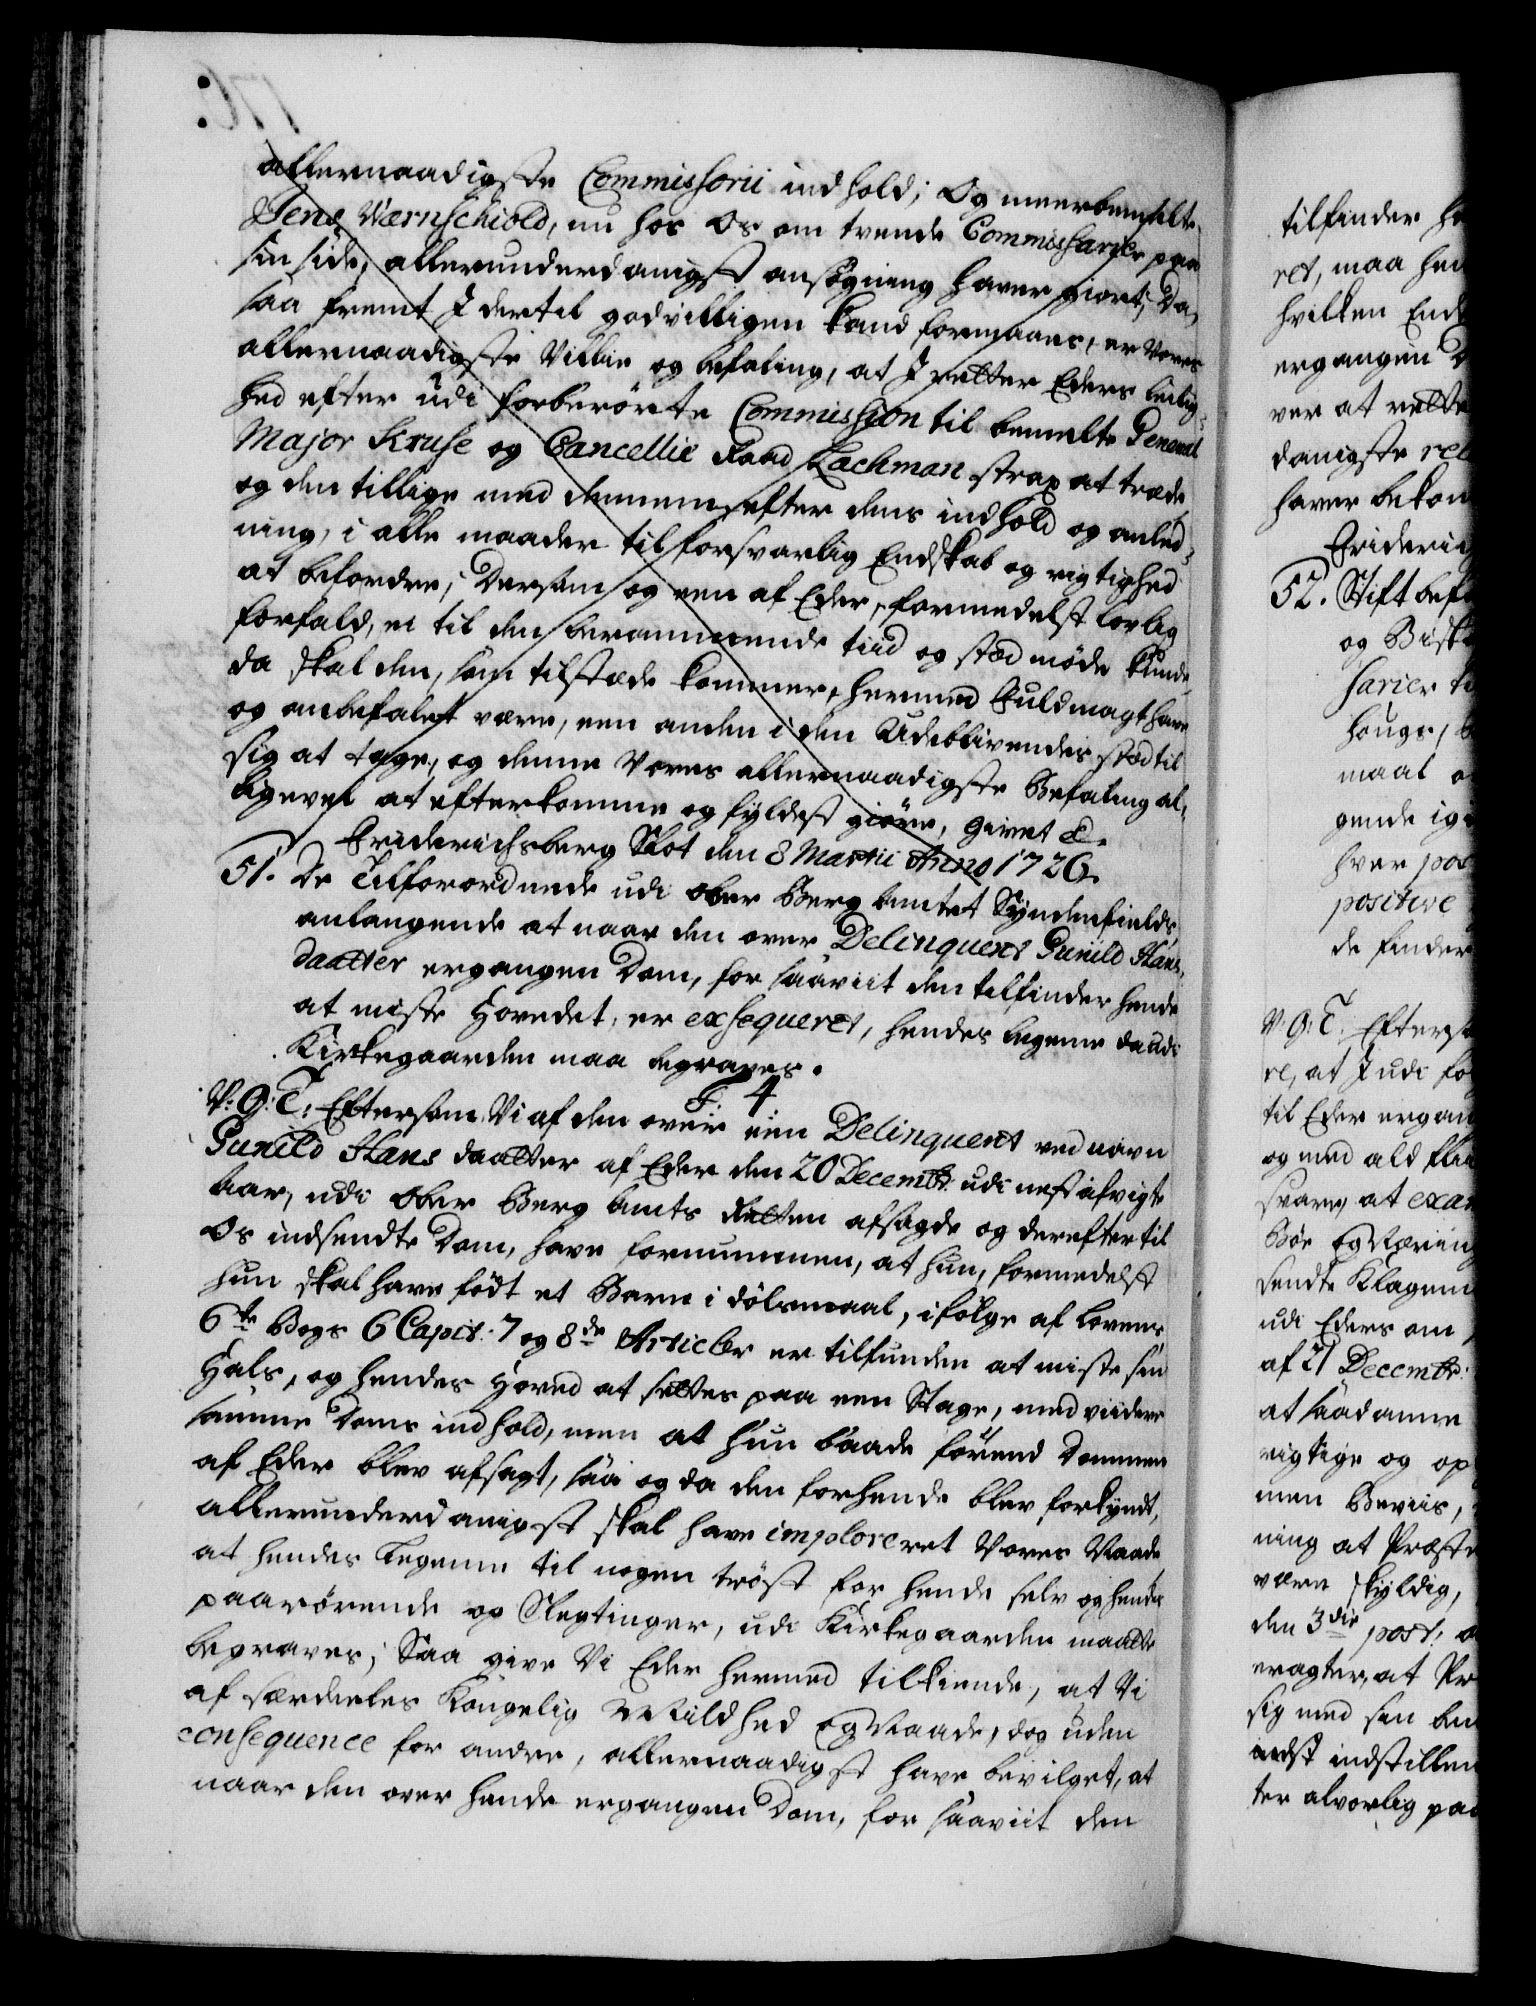 allernaadigste Commissorii indhold; Og meerbemelte
Jens Wærnschiold, nu hos Os om tvende Commissarier paa
sin side, allerunderdanigst ansøgning haver giort; Da,
saa fremt I dertil godvilligen kand formaaes, er Vores
allernaadigste Villie og befaling, at I retter Eders leilig-
hed efter udi forberørte Commission til bemelte General
Major Kruse og Cancellie Raad Lachman strax at træde,
og den tillige med dennem efter dens indhold og anled-
ning, i alle maader til forsvarlig Endskab og rigtighed
at befordre; Dersom og een af Eder, formedelst lovlig
forfald, ei til den berammende tiid og stæd møde kunde,
da skal den, som tilstæde kommer, hermed Fuldmagt have
og anbefalet være, een anden i den Udeblivendes stæd til
sig at tage, og denne Vores allernaadigste Befaling al-
ligevel at efterkomme og fyldest giøre, Givet &.
Friderichsberg Slot den 8 Martii Anno 1726.
51. De Tilforordnede udi Ober Berg Amtet Syndenfields
anlangende at naar den over Delinquent Gunild Hans-
daatter ergangen Dom, for saaviit den tilfinder hende
at miste Hovedet, er exsequeret, hendes legeme da udi
Kirkegaarden maa begraves.
F. 4
V: G: T: Eftersom Vi af den over een Delinquent ved navn
Gunild Hans daatter af Eder den 20 Decembr. udi nest afvigte
Aar, udi Ober Berg Amts Retten afsagde og derefter til
Os indsendte Dom, have fornummen, at hun, formedelst
hun skal have født et Barn i dølsmaal, ifølge af Lovens
6te Bogs 6 Capit: 7 og 8de Articler er tilfunden at miste sin
Hals, og hendes Hoved at settes paa een Stage, med viidere
samme Doms indhold, men at hun baade førend Dommen
af Eder blev afsagt, saa og da den for hende blev forkyndt,
allerunderdanigst skal have imploreret Vores Naade,
at hendes Legeme til nogen trøst for hende selv og hendes
paarørende og Slegtinger, udi Kirkegaarden maatte
begraves; Saa give Vi Eder hermed tilkiende, at Vi
af særdeeles Kongelig Mildhed og Naade, dog uden
consequence for andre, allernaadigst have bevilget, at
naar den over hende ergangen Dom, for saaviit den
tilfinder
ret, maa
hvilken
ergangen
ver at rette
danigste
haver
52. Stift
og
maal
gende
hver
positive
de finder
V: G: T:
re, at I udi
til Eder
og med ald
svare, at
Bør og
sendte
udi Eders om
af 21 Decembr:
at saadanne
rigtige og
men Beviis,
ning at Præste
være skyldig,
den 3die post:
eragter, at
sig med sin
indstillen
ter alvorlig